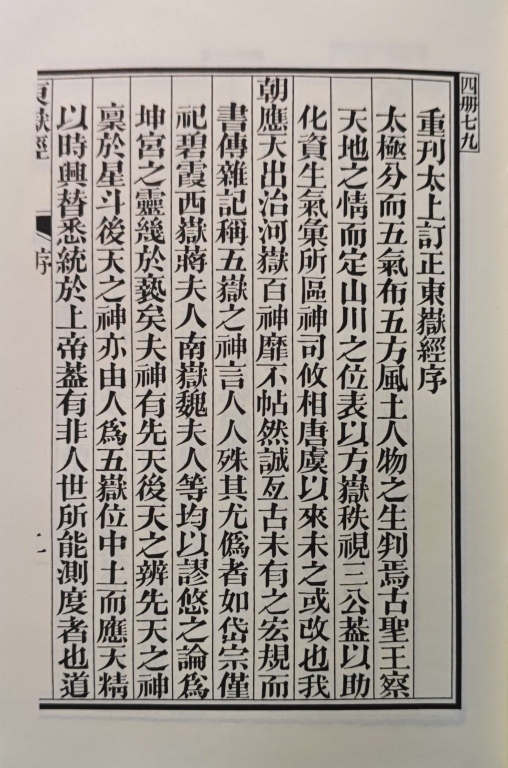 四册七九
重刊太上訂正東嶽經序
太極分而五氣布五方風土人物之生判焉古聖王察
天地之情而定山川之位表以方嶽秩視三公葢以助
化資生氣彙所區神司攸相唐虞以來未之或改也我
朝應天出治河嶽百神靡不帖然誠亙古未有之宏規而
書傳雜記稱五嶽之神言人人殊其尤僞者如岱宗僅
祀碧霞西嶽蔣夫人南嶽魏夫人等均以謬悠之論爲
坤宮之靈幾於褻矣夫神有先天後天之辨先天之神
稟於星斗後天之神亦由人爲五嶽位中土而應天精
以時興替悉統於上帝葢有非人世所能測度者也道
東嶽經
序